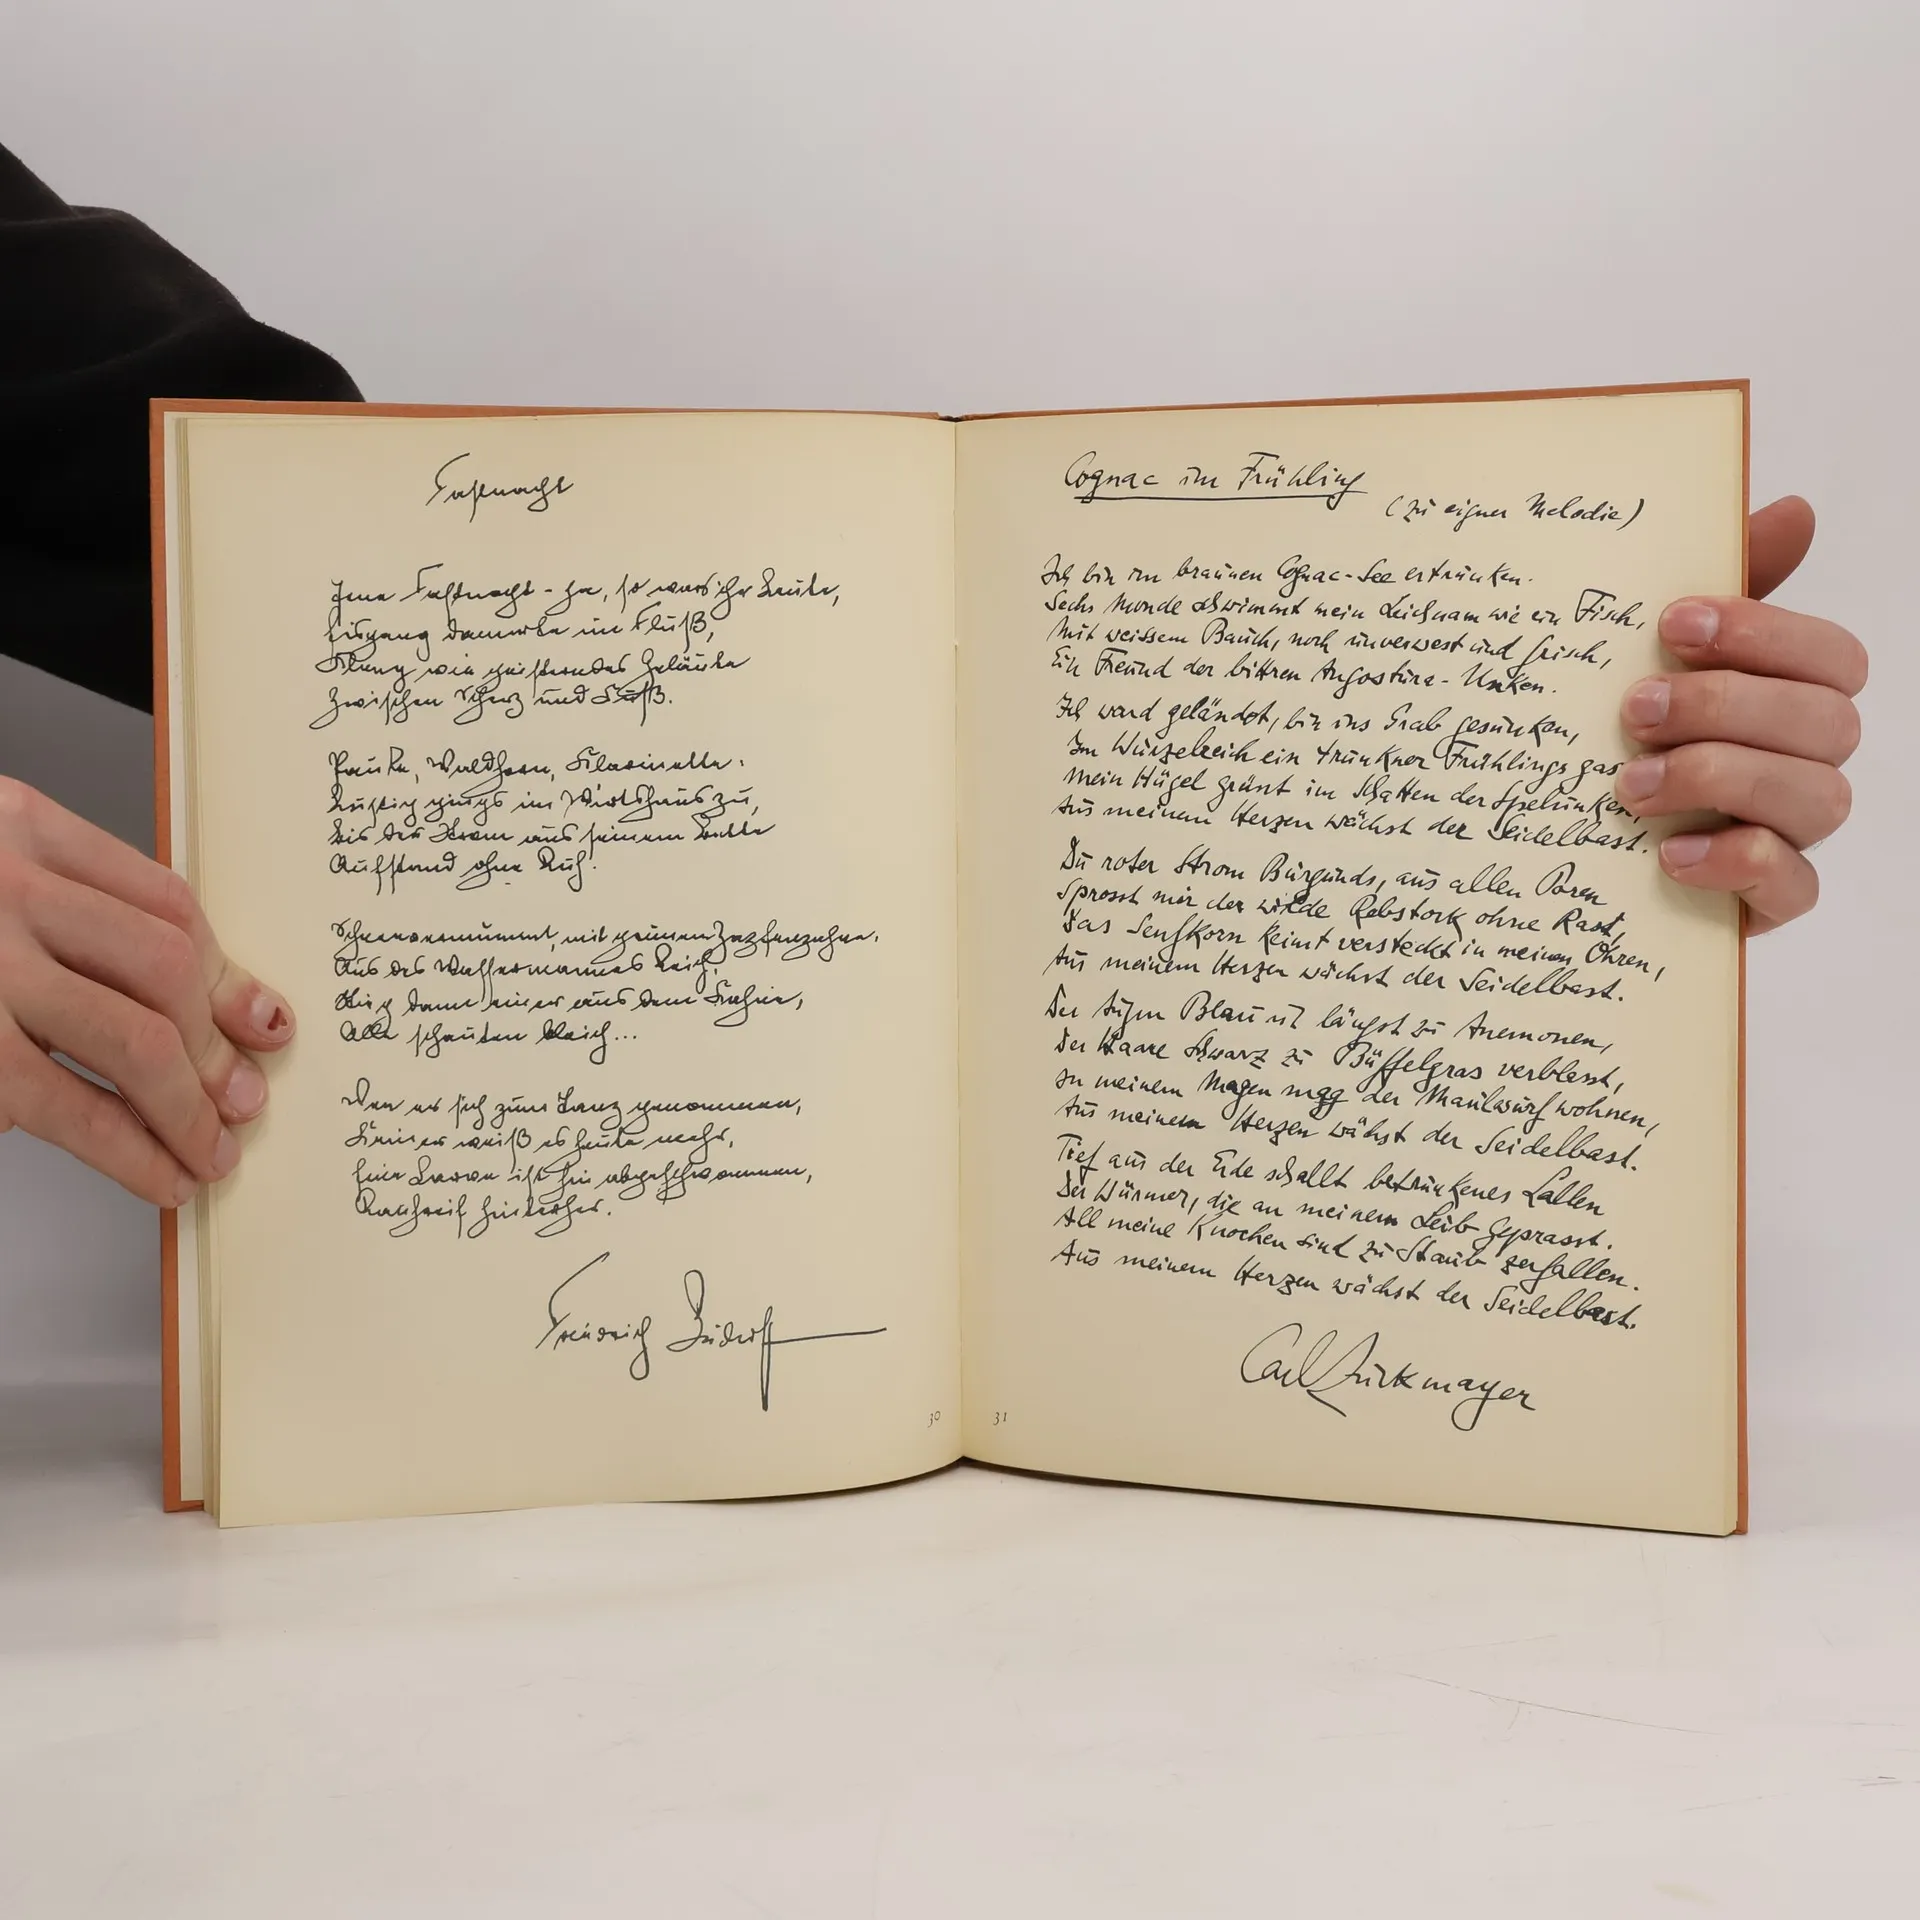 Fastnacht
Jene Fastnacht - ha, so war's ihr Leute,
Eisgang donnerte im Fluß,
Klang wie geisterndes Geläute
Zwischen Scherz und Kuß.
Pauke, Waldhorn, Klarinette:
Lustig ging's im Wirtshaus zu,
Bis der Strom aus seinem Bette
Aufstand ohne Ruh.
mit grünen
Aus des Wassermannes Reich,
Stieg dann einer aus dem
Alle schauten bleich...
Wen er sich zum Tanz genommen,
Keiner weiß es heute mehr,
Eine Larve ist hin abgeschwommen,
Rauhreif hinterher.
Friedrich Bischoff
30
Cognac im Frühling
(zu eigner Melodie)
Ich bin im braunen Cognac-See ertrunken.
Sechs Monde schwimmt mein Leichnam wie ein Fisch,
Mit weissem Bauch, noch unverwest und frisch,
Ein Freund der bittren Angostura-Unken.
Ich ward geländet, bin ins Grab gesunken,
Im Wurzelreich ein trunkner Frühlingsgast
Mein Hügel grünt im Schatten der Spelunken,
Aus meinem Herzen wächst der Seidelbast.
Du roter Strom Burgunds, aus allen Poren
Sprosst mir der wilde Rebstock ohne Rast,
Das Senfkorn keimt versteckt in meinen Ohren,
Aus meinem Herzen wächst der Seidelbast.
Der Augen Blau ist längst zu Anemonen,
Der Haare Schwarz zu Büffelgras verblasst,
In meinem Magen mag der Maulwurf wohnen,
Aus meinem Herzen wächst der Seidelbast.
Tief aus der Erde schallt betrunkenes Lallen
Der Würmer, die an meinem Leib geprasst.
All meine Knochen sind zu Staub zerfallen.
Aus meinem Herzen wächst der Seidelbast.
Carl Zuckmayer
31